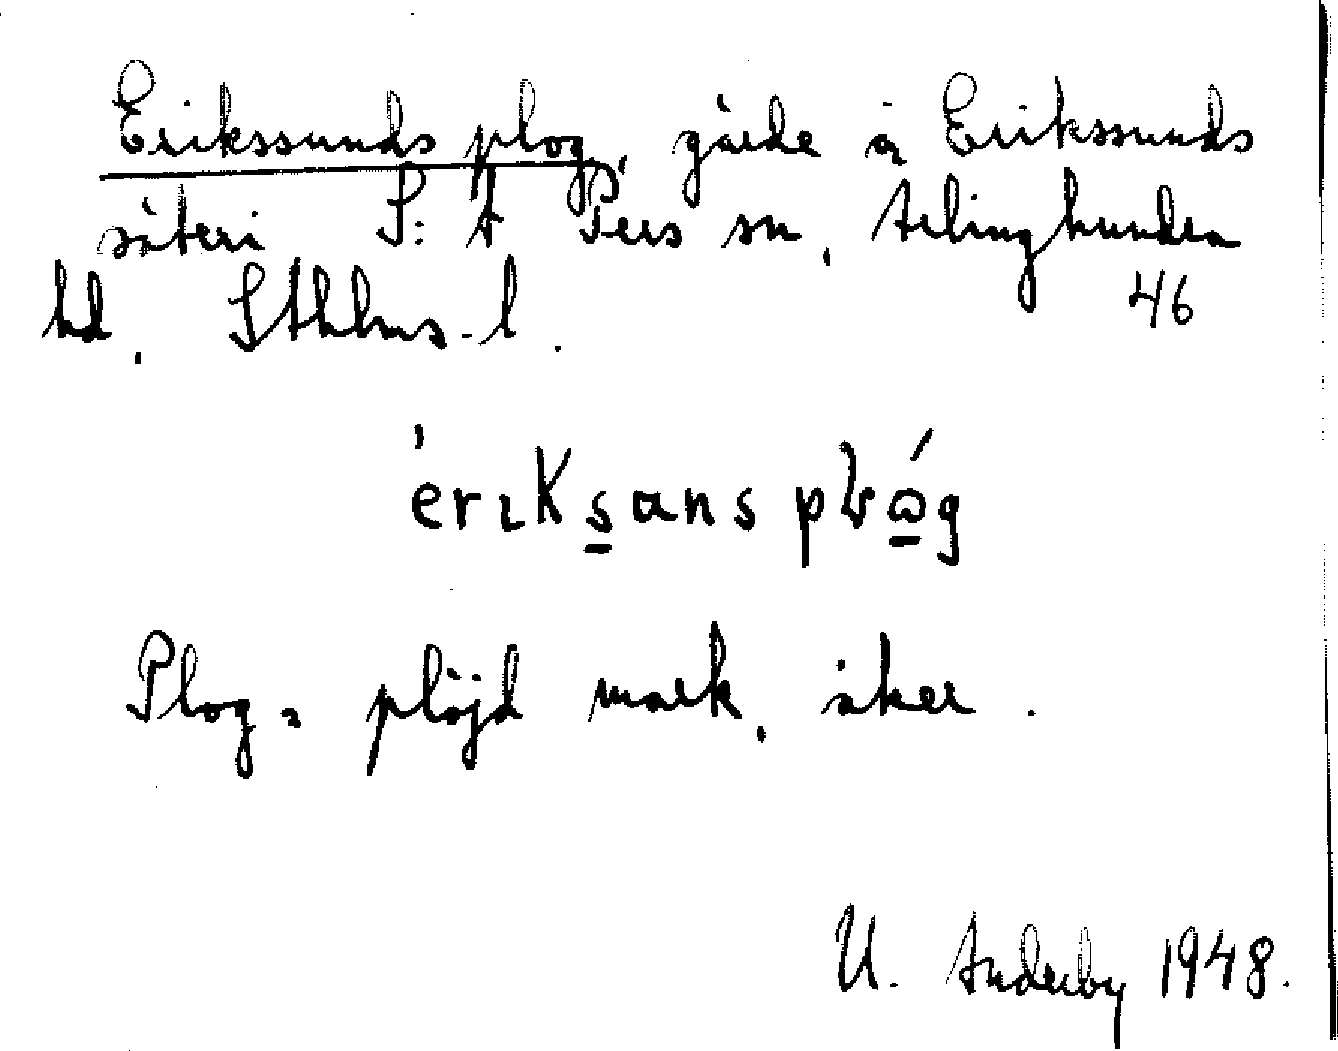 Erikssunds plog, gärde å Erikssunds
säteri S:t Pers sn, Ärlinghundra
hd, Sthlms l.
46
ériksans plóg
Plog = plöjd mark, åker.
U. Anderby 1948.